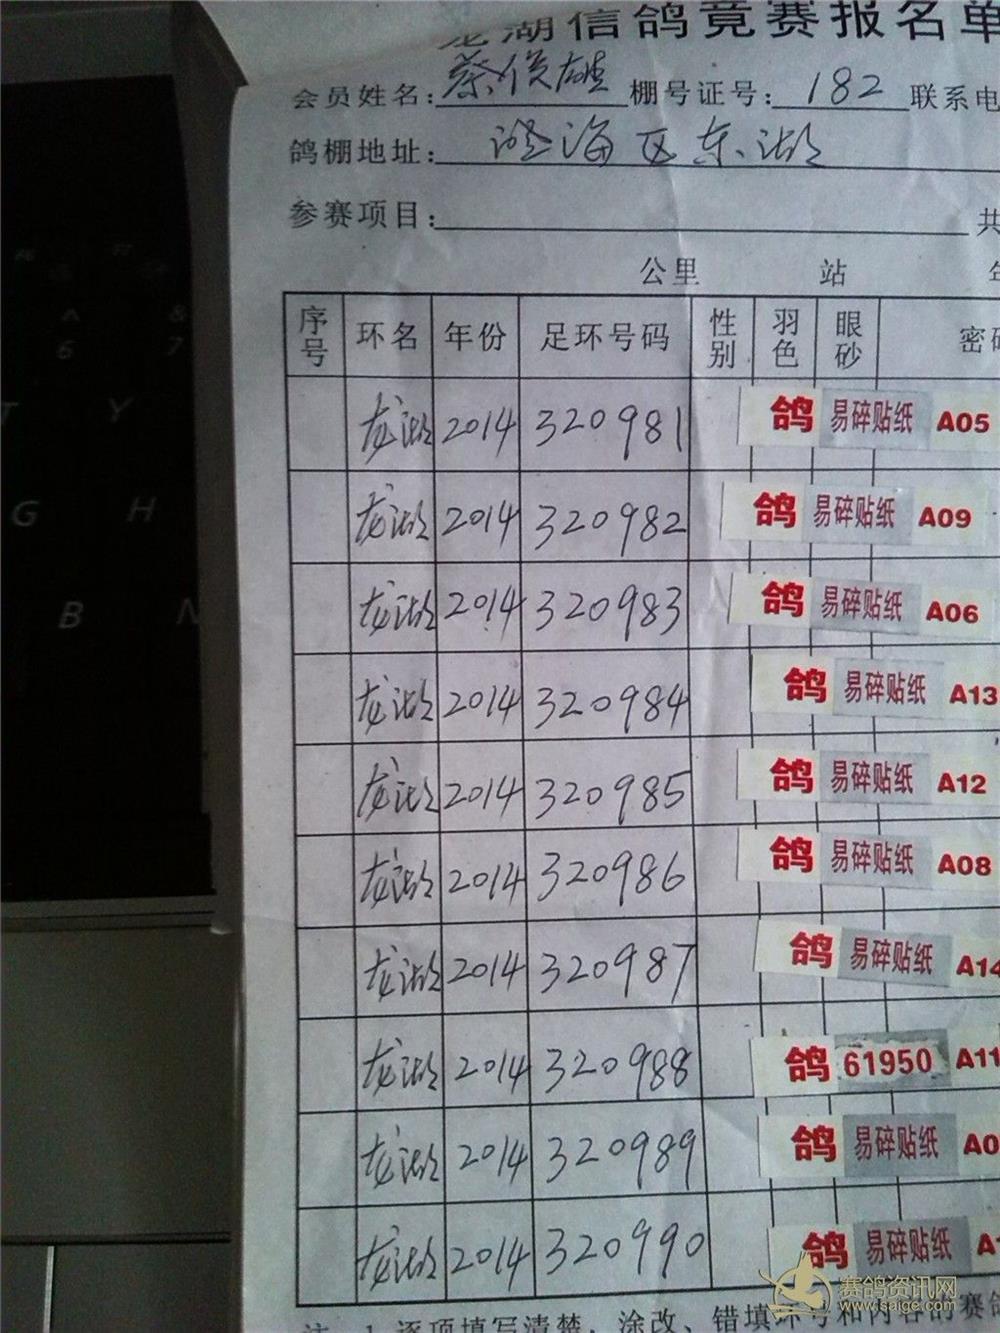 龙湖信鸽竞赛报名单
会员姓名: 蔡俊雄 棚号证号: 182 联系电
鸽棚地址: 澄海区东湖
参赛项目: 共
公里 站 年
序号 环名 年份 足环号码 性别 羽色 眼砂 密码
龙湖 2014 320981 鸽 易碎贴纸 A05
龙湖 2014 320982 鸽 易碎贴纸 A09
龙湖 2014 320983 鸽 易碎贴纸 A06
龙湖 2014 320984 鸽 易碎贴纸 A13
龙湖 2014 320985 鸽 易碎贴纸 A12
龙湖 2014 320986 鸽 易碎贴纸 A08
龙湖 2014 320987 鸽 易碎贴纸 A14
龙湖 2014 320988 鸽 61950 A11
龙湖 2014 320989 鸽 易碎贴纸 A0
龙湖 2014 320990 鸽 易碎贴纸 A1
注 1 逐项填写清楚,涂改、错填环号和内容的赛鸽
赛鸽资讯网
www.saige.com
^ &
6 7
T Y
G H
B N